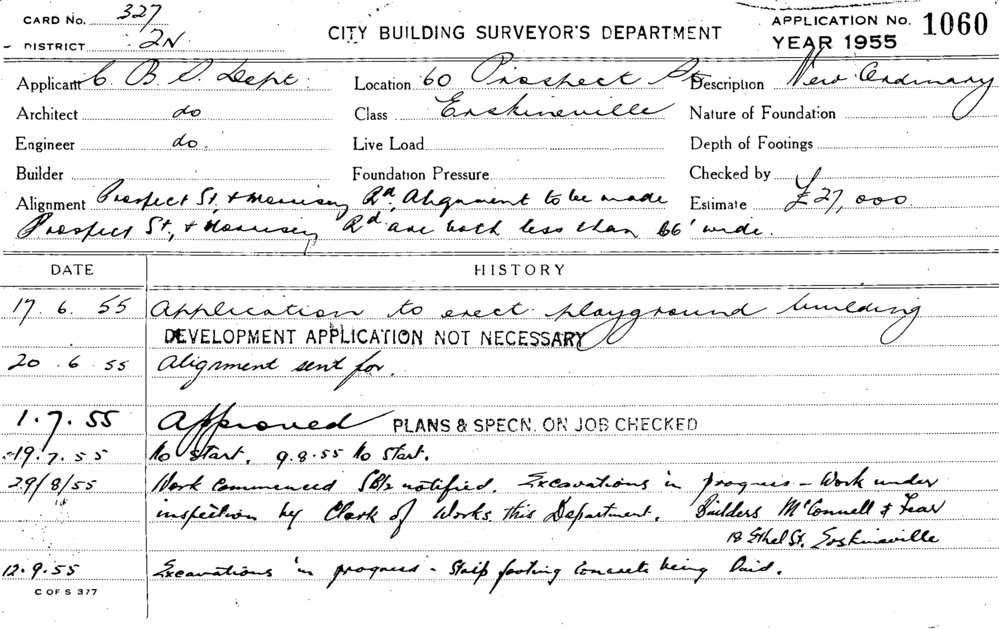 CARD No. 327
DISTRICT 2N
CITY BUILDING SURVEYOR'S DEPARTMENT
APPLICATION No. 1060
YEAR 1955
Applicant C. B. S. Dept. Location 60 Prospect St Description New Ordinary
Architect do Class Erskineville Nature of Foundation
Engineer do. Live Load Depth of Footings
Builder Foundation Pressure Checked by
Alignment Prospect St, & Morrissey Rd, Alignment to be made Estimate £27,000
Prospect St, & Morrissey Rd are both less than 66' wide.
DATE HISTORY
17. 6. 55 Application to erect playground building
DEVELOPMENT APPLICATION NOT NECESSARY
20. 6. 55 Alignment sent for.
1. 7. 55 Approved PLANS & SPECN. ON JOB CHECKED
19. 7. 55 No Start. 9.8.55 No Start.
29/8/55 Work Commenced notified. Excavations in progress - Work under
inspection by Clerk of Works this Department. Builders McConnell & Fear
18 Ethel St. Erskineville
12. 9. 55 Excavations in progress - Strip footing concrete being laid.
C OF S 377